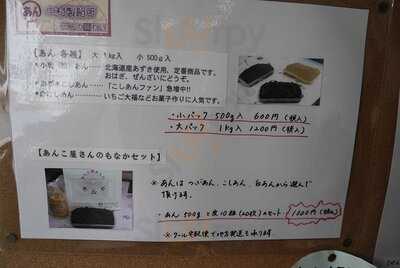 あん
【あん 各種】 大 1kg入 小 500g入
あん…… 北海道産あずき使用、定番商品です。
おはぎ、ぜんざいにどうぞ。
「こしあんファン」急増中!!
いちご大福などお菓子作りに人気です。
・小パック 500g入 600円(税入)
・大パック 1kg入 1200円(税入)
【あんこ屋さんのもなかセット】
※あんは つぶあん、こしあん、白あんから選んで
頂けます。
・あん 500gと皮10組(20枚)のセット
※クール宅配便で地方発送も承ります。